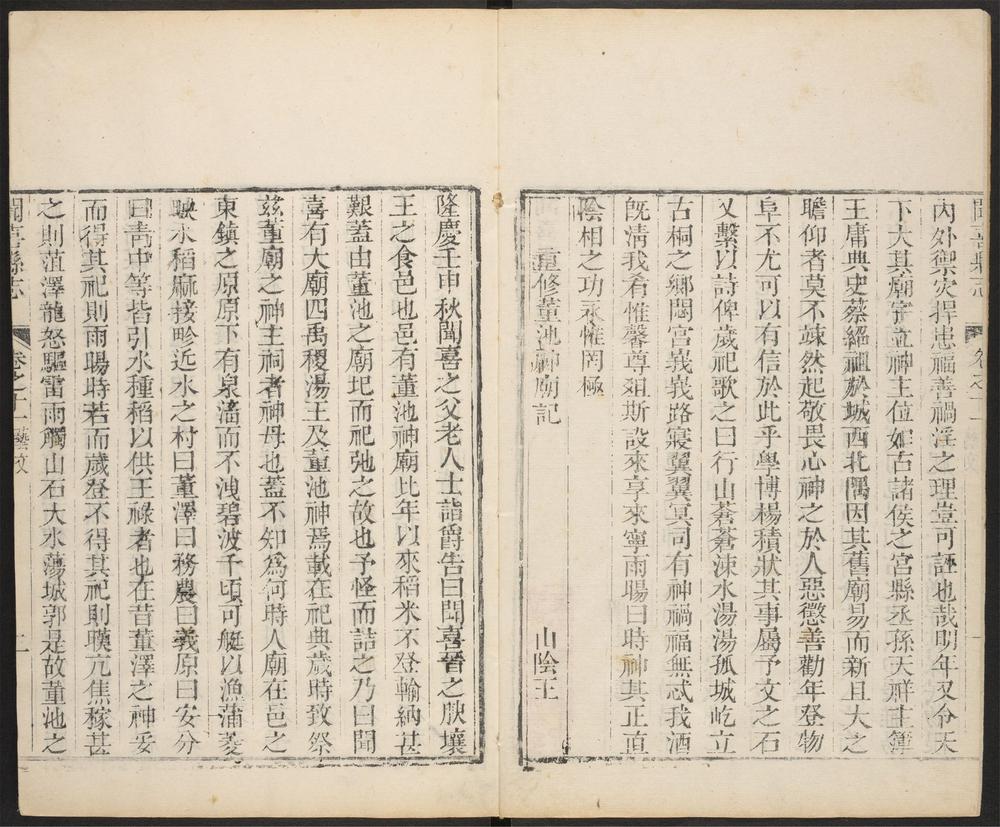 聞喜縣志 卷之十一
內外禦灾捍患福善禍淫之理豈可誣也哉明年又令天
下大其廟宇立神主位如古諸侯之宮縣丞孫天祥主簿
王庸典史蔡紹祖於城西北隅因其舊廟易而新且大之
瞻仰者莫不竦然起敬畏心神之於人惡懲善勸年登物
阜不尤可以有信於此乎學博楊積狀其事屬予文之石
又繫以詩俾歲祀歌之曰行山蒼蒼涑水湯湯孤城屹立
古桐之鄉閟宮峩峩路寢翼翼冥司有神禍福無忒我酒
旣淸我肴惟馨尊俎斯設來享來寧雨暘曰時神其正直
陰相之功永惟罔極
重修董池神廟記 山陰王
隆慶壬申秋聞喜之父老人士詣爵告曰聞喜晉之腴壤
王之食邑也邑有董池神廟比年以來稻米不登輸納甚
艱蓋由董池之廟圯而祀弛之故也予怪而詰之乃曰聞
喜有大廟四禹稷湯王及董池神焉載在祀典歲時致祭
茲董廟之神主祠者神母也蓋不知爲何時人廟在邑之
東鎮之原原下有泉潏而不洩碧波千頃可艇以漁蒲菱
映水稻麻接畛近水之村曰董澤曰務農曰義原曰安分
曰靑中等皆引水種稻以供王祿者也在昔董澤之神妥
而得其祀則雨暘時若而歲登不得其祀則暵亢焦稼甚
之則菹澤龍怒驅雷雨觸山石大水蕩城郭是故董池之
聞喜縣志 卷之十一 藝文 二